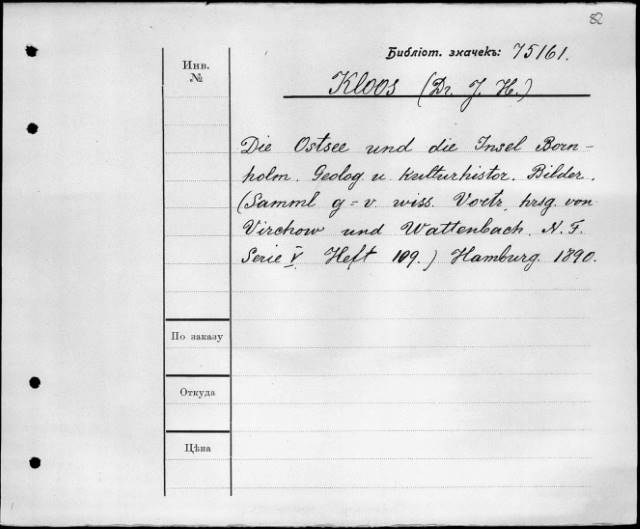 82
Библіот. значекъ: 75161.
Инв.
№
Kloos (Dr. J. H.)
Die Ostsee und die Insel Born-
holm. Geolog u. kulturhistor. Bilder.
(Samml g=v. wiss. Vortr. hrsg. von
Virchow und Wattenbach. N. F.
Serie V. Heft 109.) Hamburg 1890.
По заказу
Откуда
Цѣна